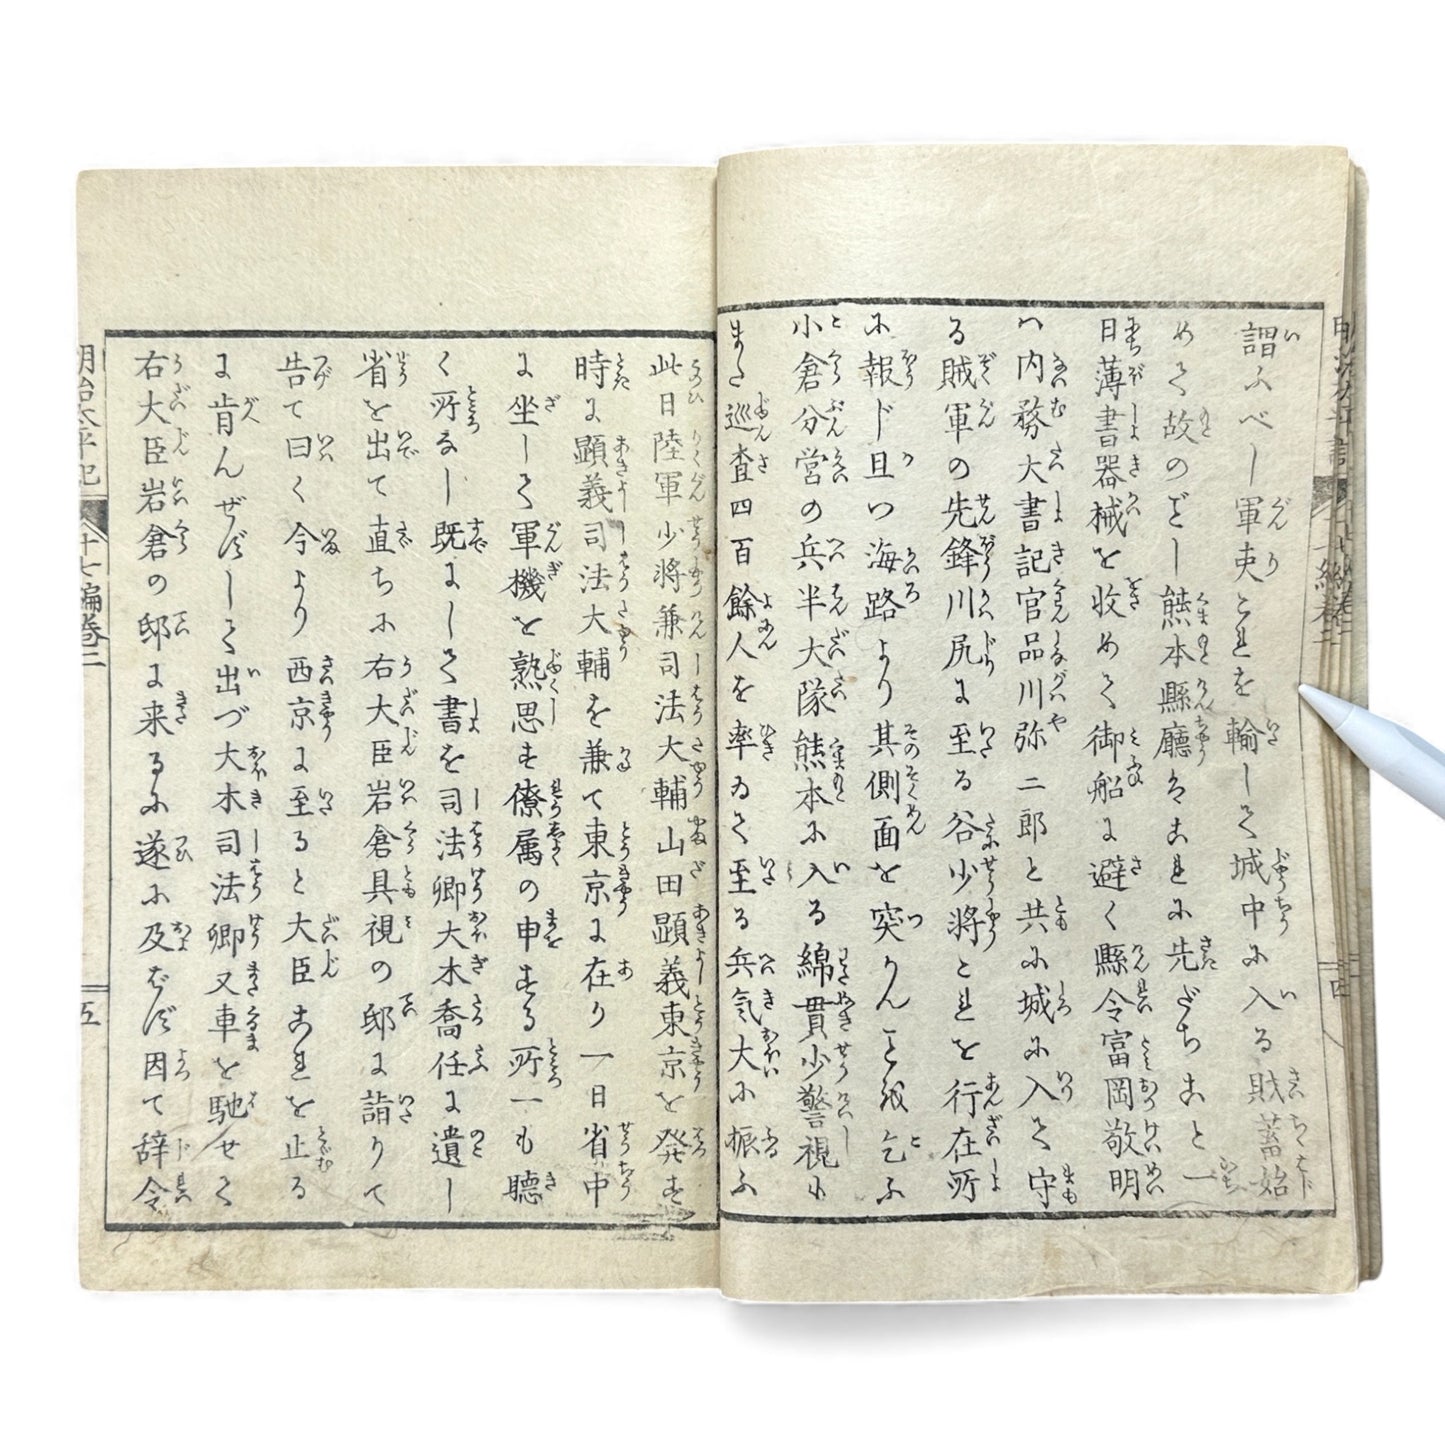 謂ふべし軍吏これを輸して城中に入る財蓄始
めて故のごとし熊本縣廳はこれに先だちこと〻
日薄書器械を収めて御船に避く縣令富岡敬明
ハ内務大書記官品川弥二郎と共に城に入て守
る賊軍の先鋒川尻に至る谷少将これを行在所
に報ず且つ海路より其側面を突かんことを乞ふ
小倉分営の兵半大隊熊本に入る綿貫少警視も
また巡査四百餘人を率ゐて至る兵気大に振ふ
此日陸軍少将兼司法大輔山田顕義東京を発す
時に顕義司法大輔を兼て東京に在り一日省中
に坐して軍機を熟思す僚属の申する所一も聴
く所なし既にして書を司法卿大木喬任に遺し
省を出て直ちに右大臣岩倉具視の邸に詣りて
告て曰く今より西京に至ると大臣これを止る
に肯んぜずして出づ大木司法卿又車を馳せて
右大臣岩倉の邸に来るに遂に及ばず因て辞令
明治太平記
十七編巻二
五
四